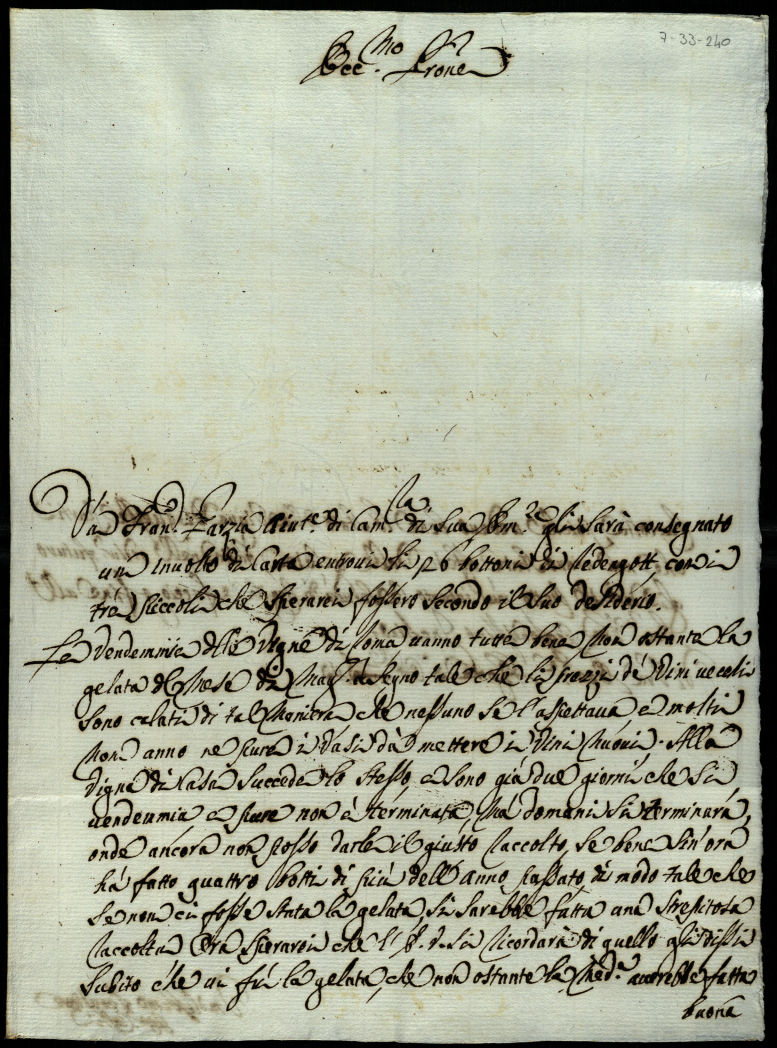 7-33-240
Ecc.mo Prone
Da Fran.co Zarzia Aiut.e di Cam.ra di Sua Em.za gli sarà consegnato
un Involto di Carta entrovi li 26 bottoni di Redengott, con i
trè piccoli che sperarei fossero secondo il suo desiderio.
Le Vendemmie delle Vigne di Roma vanno tutte bene non ostante la
gelata del Mese di Mag.o à segno tale che li prezzi dè Vini vecchi
sono calati di tal Maniera che nessuno se l'aspettava, e molti
non anno ne pure i Vasi dà mettere i Vini Nuovi. Alla
Vigna di Casa succede lo stesso, e sono già due giorni che si
vendemia e pure non è terminata, mà domani si terminarà,
onde ancora non posso darle il giusto Raccolto, se bene sin'ora
hà fatto quattro botti di più dell'anno passato di modo tale che
se non ci fosse stata la gelata, si sarebbe fatta una strepitosa
Raccolta. Ora sperarei che l' E. V. si ricordarà di quello gli dissi
subito che vi fù la gelata, che non ostante la Med.a averebbe fatta
buona